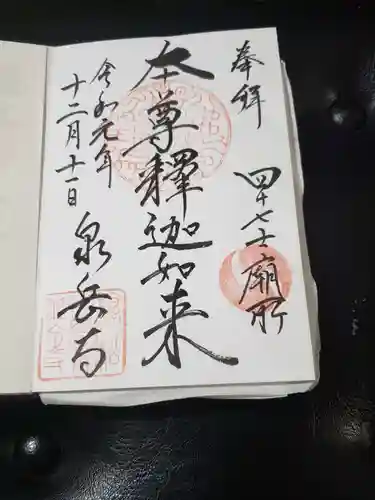 奉拝
四十七士廟所
本尊釋迦如来
令和元年
十二月十一日
泉岳寺